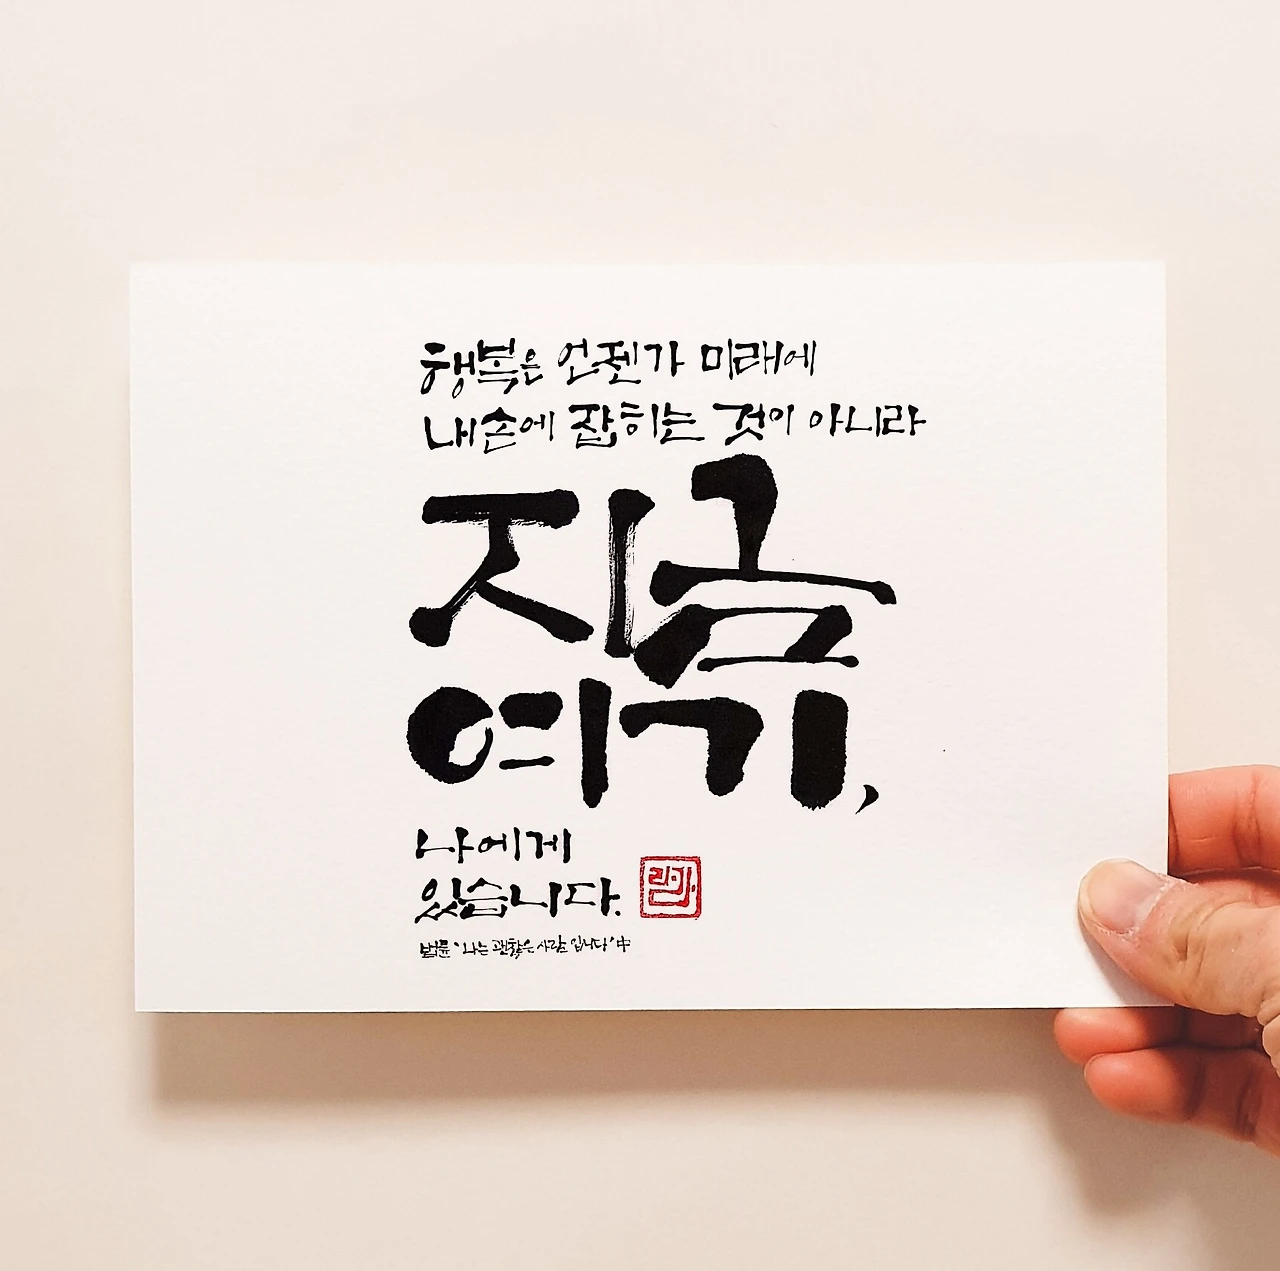 행복은 언젠가 미래에
내손에 잡히는 것이 아니라
지금
여기,
나에게
있습니다.
법륜 "나는 괜찮은 사람 입니다" 中